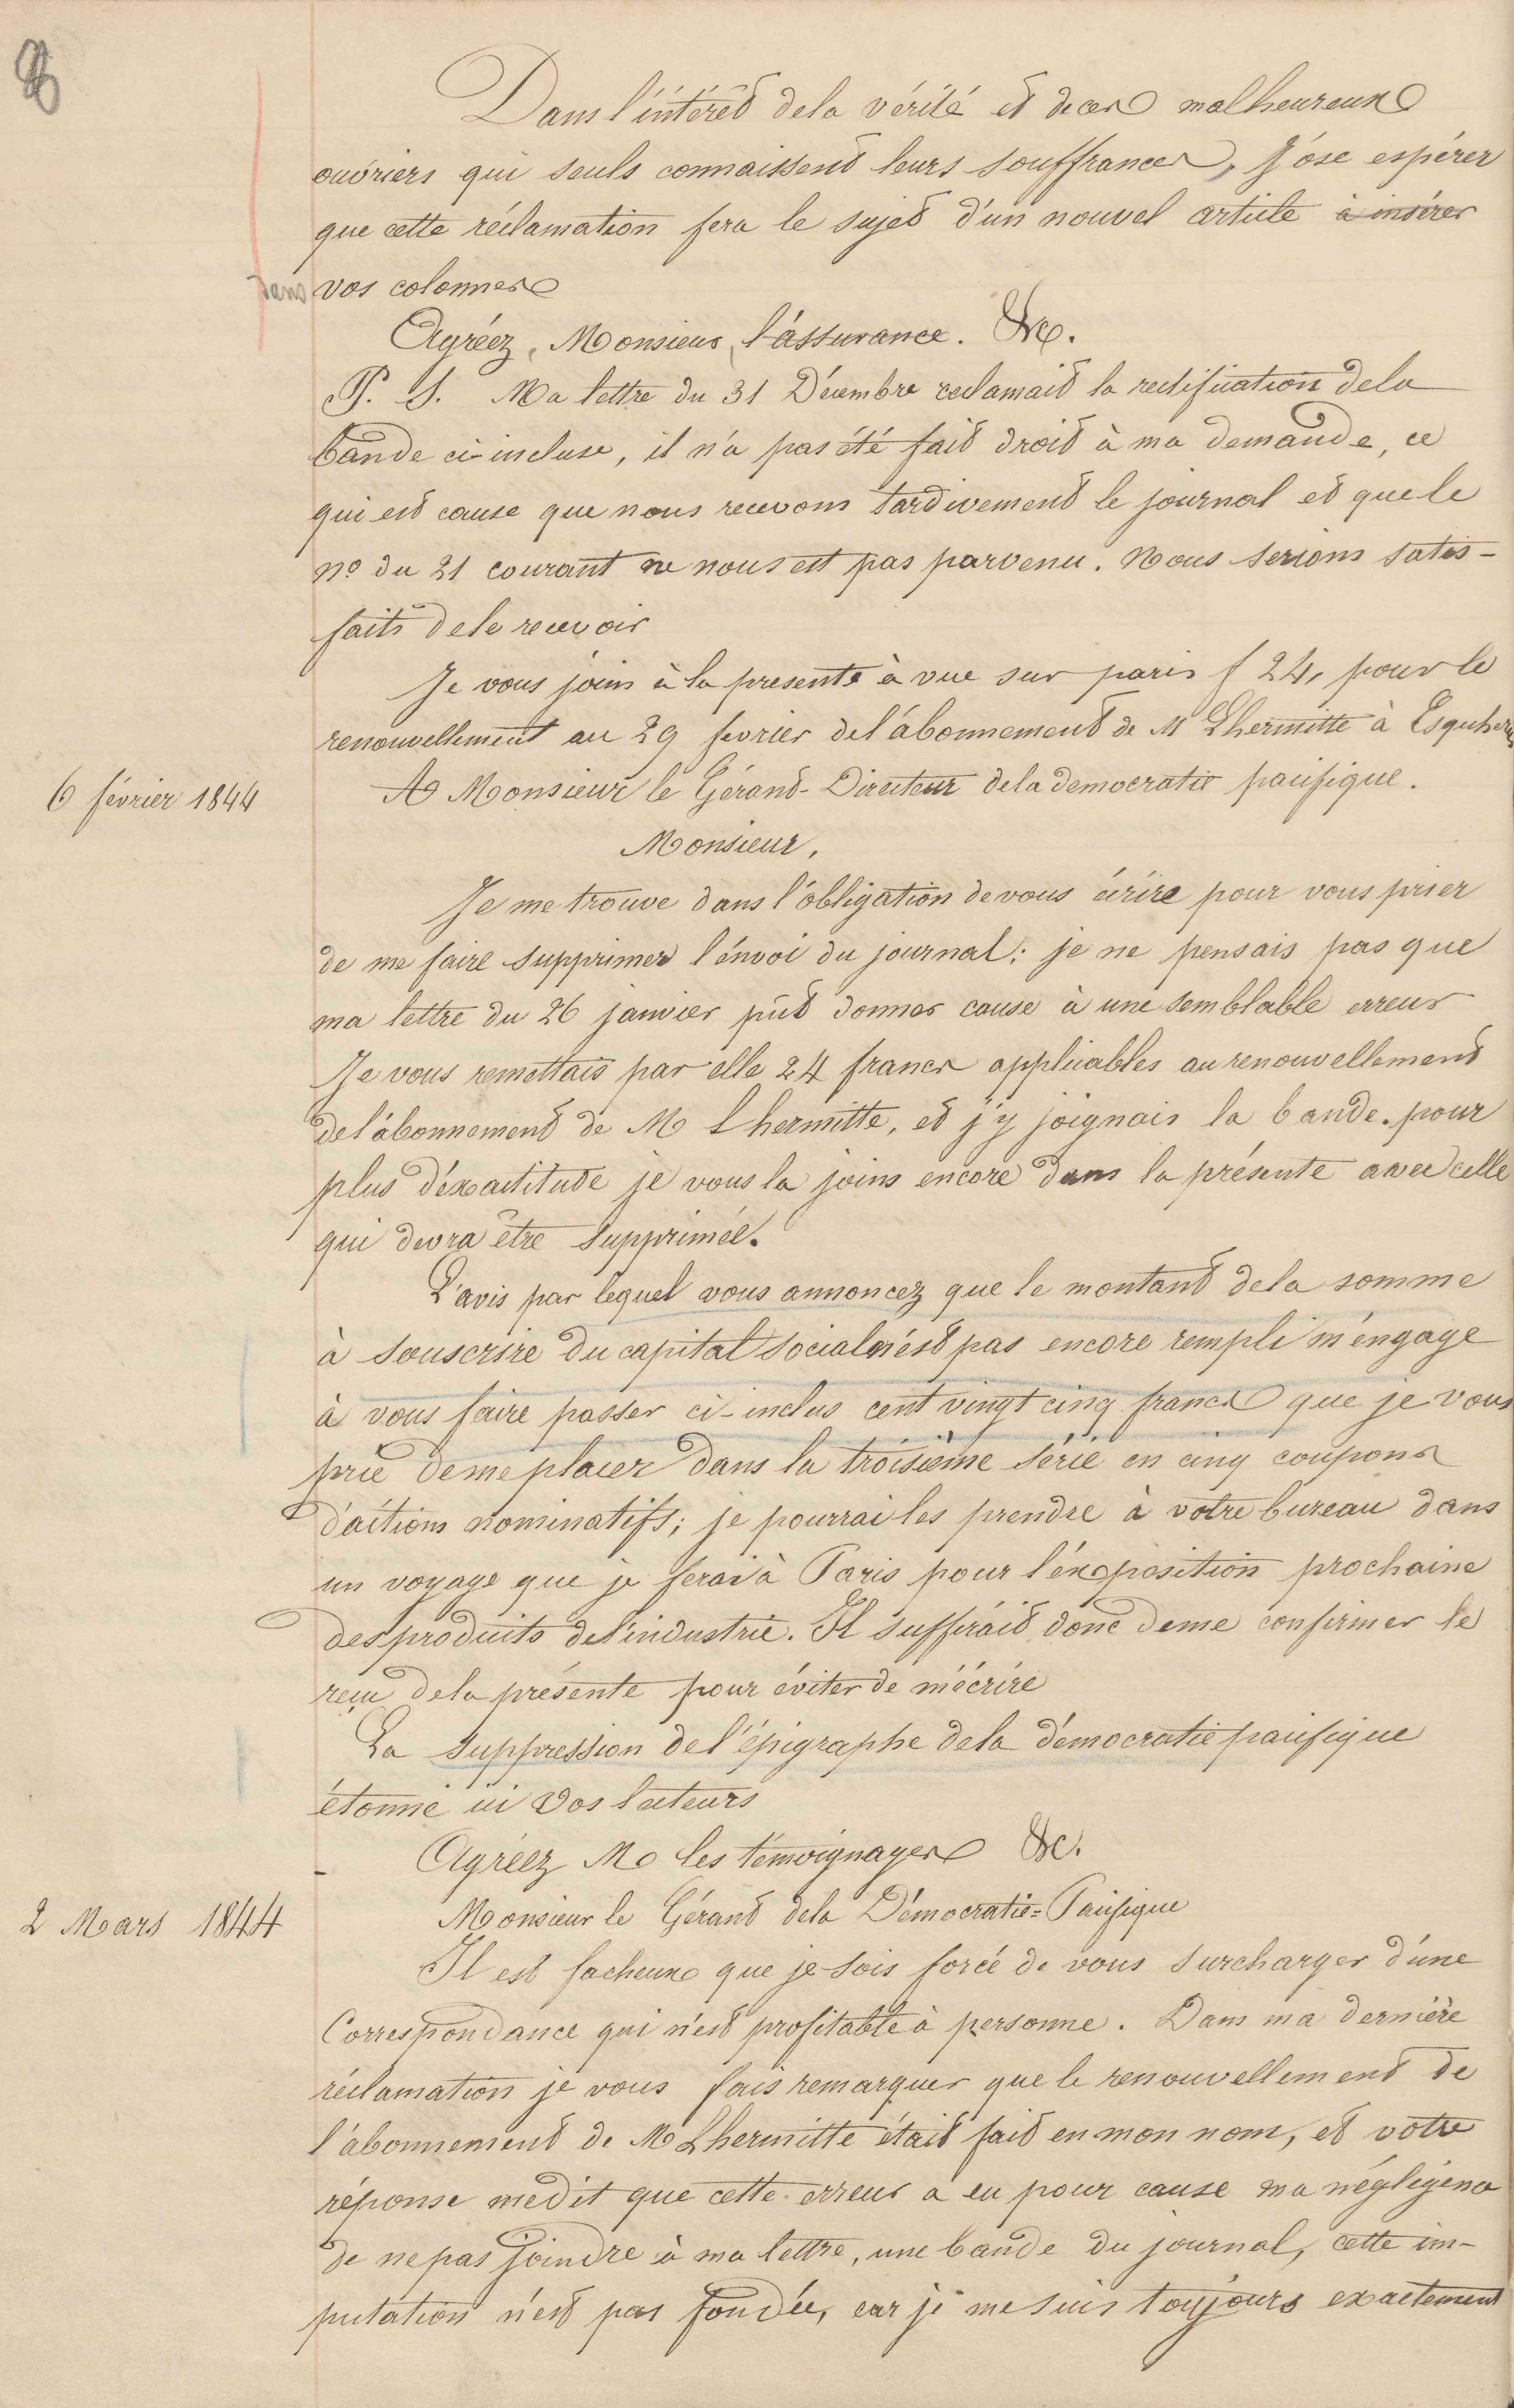 8
Dans l'intérêt dela vérité et de ces malheureux
ouvriers qui seuls connaissent leurs souffrances, j'ose espérer
que cette réclamation fera le sujet d'un nouvel article à insérer
dans vos colonnes
Agréez, Monsieur, l'assurance. &c.
P. S. Ma lettre du 31 Décembre reclamait la rectification dela
bande ci-incluse, il n'a pas été fait droit à ma demande, ce
qui est cause que nous recevons tardivement le journal et que le
no du 21 courant ne nous est pas parvenu. Nous serions satis-
faits de le recevoir
Je vous joins à la presente à vue sur paris f 24, pour le
renouvellement au 29 fevrier de l'abonnement de M Lhermitte à Esquheries
6 février 1844
A Monsieur le Gérant-Directeur dela democratie pacifique.
Monsieur,
Je me trouve dans l'obligation de vous écrire pour vous prier
de me faire supprimer l'envoi du journal: je ne pensais pas que
ma lettre du 26 janvier pût donner cause à une semblable erreur
Je vous remettais par elle 24 francs applicables au renouvellement
de l'abonnement de M Lhermitte, et j'y joignais la bande. pour
plus d'exactitude je vous la joins encore dans la présente avec celle
qui devra être supprimée.
L'avis par lequel vous annoncez que le montant dela somme
à souscrire du capital social n'est pas encore rempli m'engage
à vous faire passer ci-inclus cent vingt cinq francs que je vous
prie de me placer dans la troisième série en cinq coupons
d'actions nominatifs; je pourrai les prendre à votre bureau dans
un voyage que je ferai à Paris pour l'exposition prochaine
des produits de l'industrie. Il suffirait donc de me confirmer le
reçu dela présente pour éviter de m'écrire
La suppression de l'épigraphe dela démocratie pacifique
étonne ici vos lecteurs
Agréez M les témoignages &c.
2 Mars 1844
Monsieur le Gérant dela Démocratie=Pacifique
Il est facheux que je sois forcé de vous surcharger d'une
Correspondance qui n'est profitable à personne. Dans ma dernière
réclamation je vous fais remarquer que le renouvellement de
l'abonnement de M Lhermitte était fait en mon nom, et votre
réponse me dit que cette erreur a eu pour cause ma négligence
de ne pas joindre à ma lettre, une bande du journal, cette im-
putation n'est pas fondée, car je me suis toujours exactement